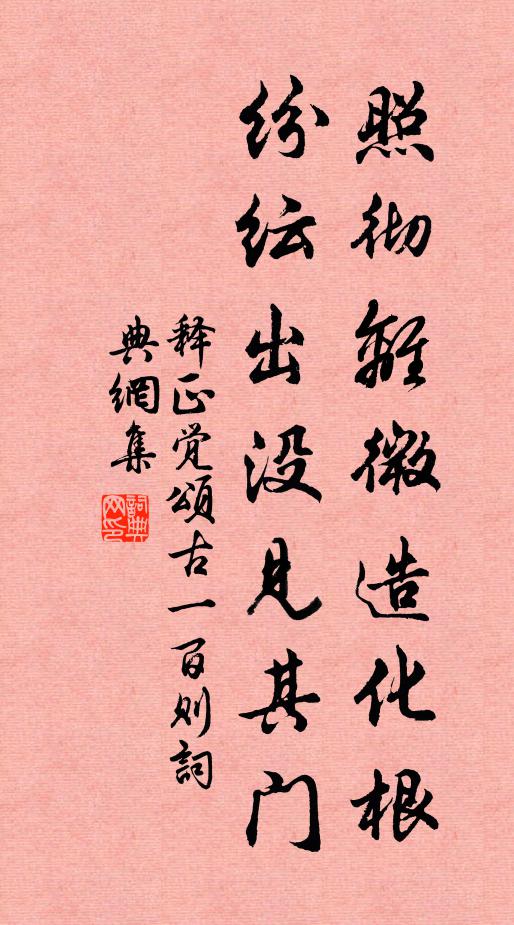 照彻離微造化根
纷纭出没见其门
释正觉頌古一百则詞
典網集
詞典网印